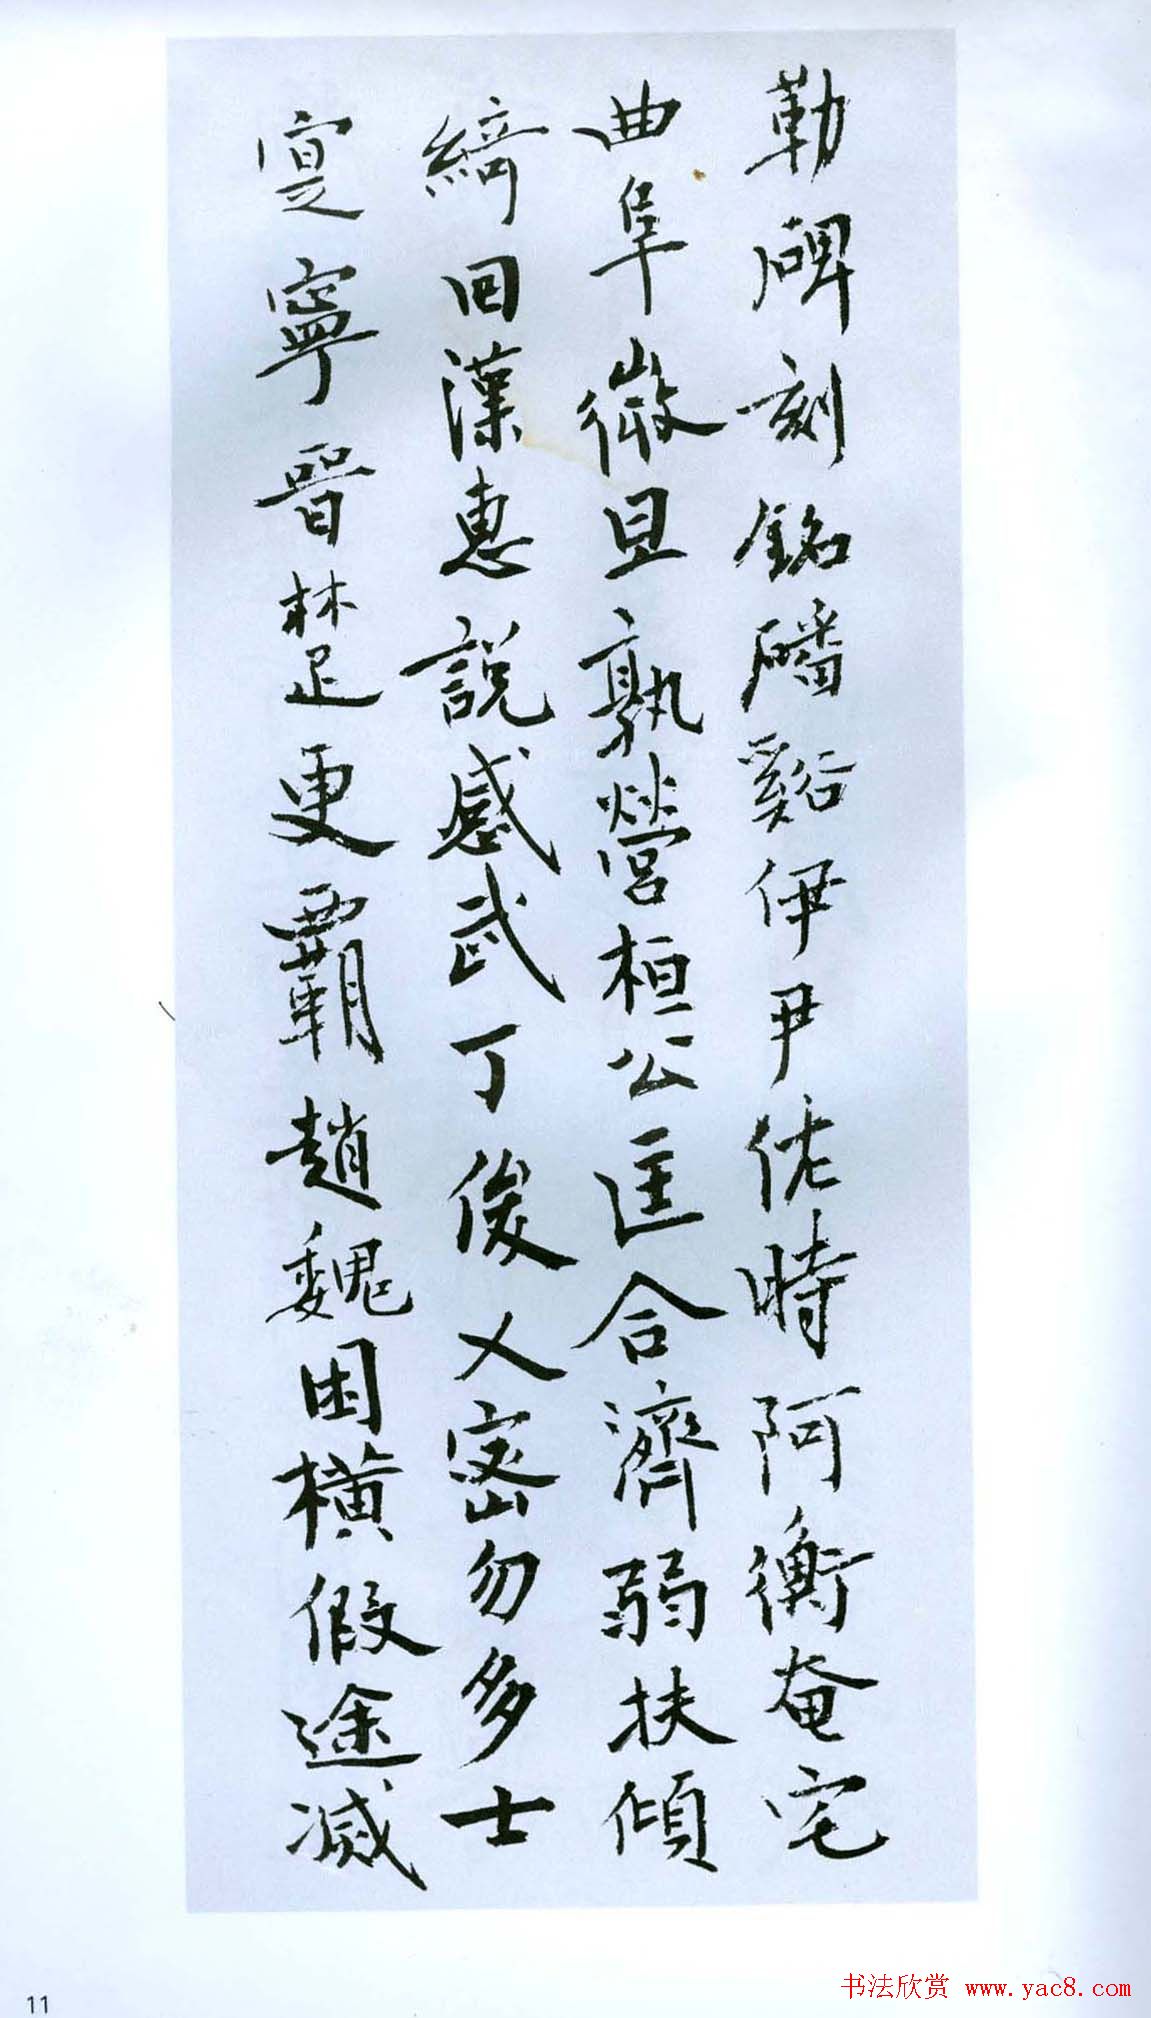 勒碑刻銘磻谿伊尹佐時阿衡奄宅
曲阜微旦孰營桓公匡合濟弱扶傾
綺回漢惠說感武丁俊乂密勿多士
寔寧晉楚更霸趙魏困橫假途滅
11
书法欣赏 www.yac8.com